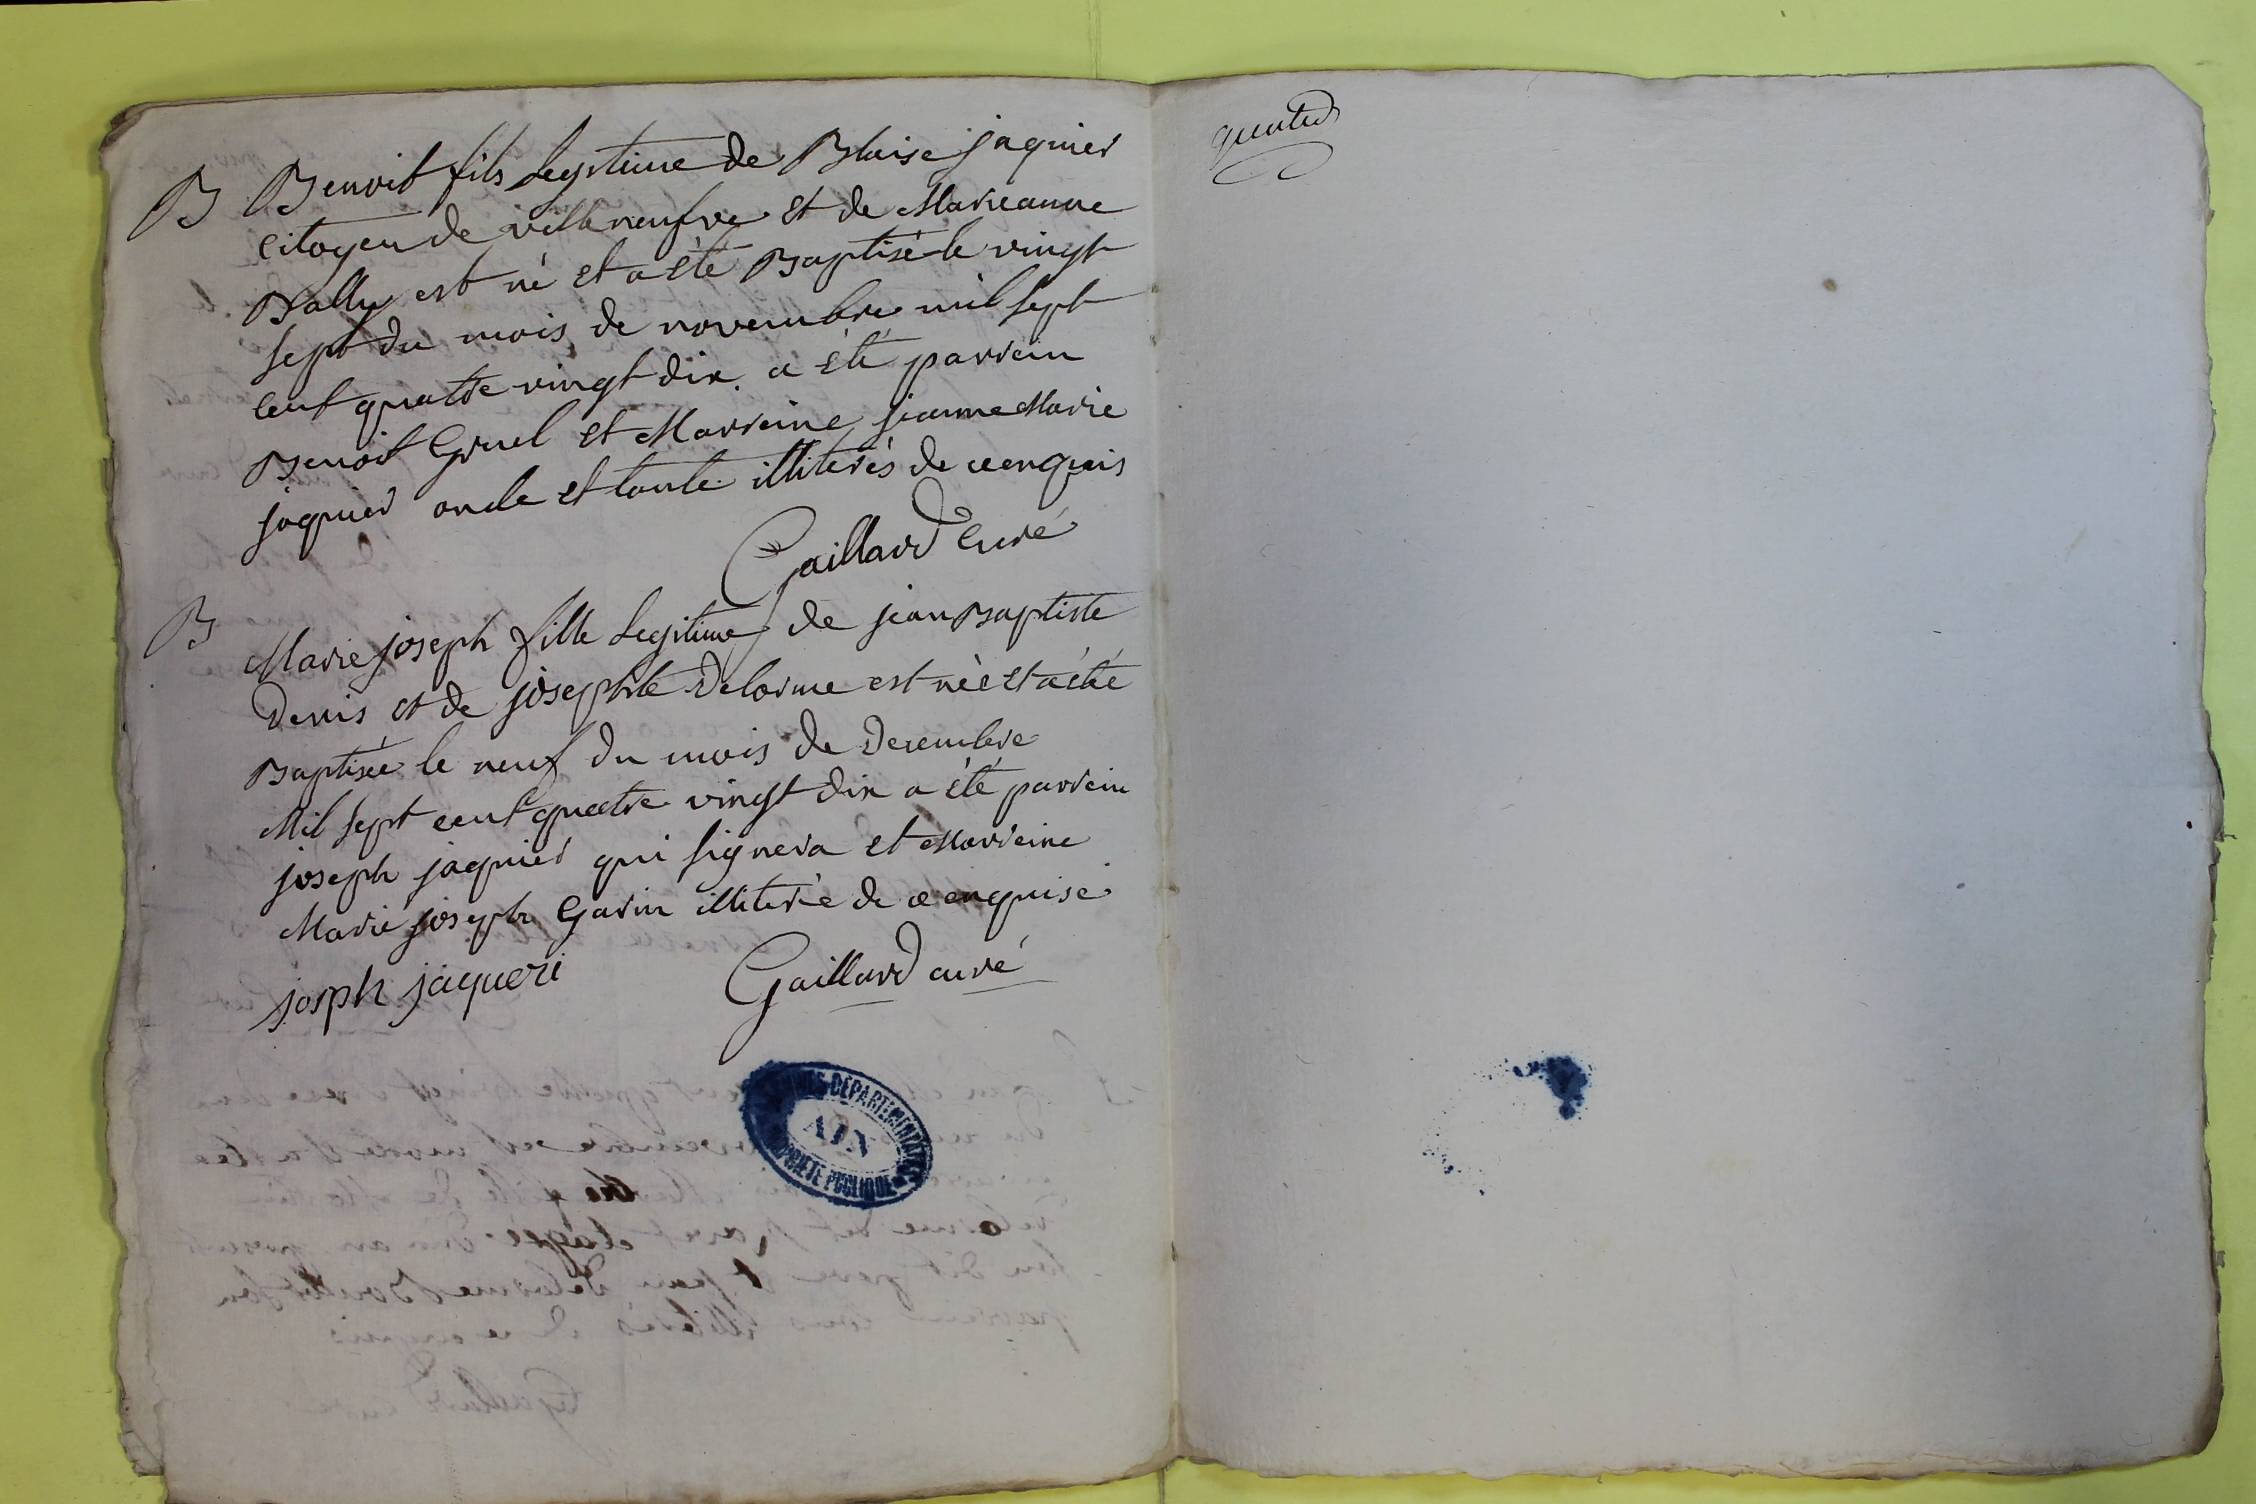 B Benoit fils Legstime de Blaise jaquier
citoyen de villeneufve et de Marieanne
Bally est né et a été Baptisé le vingt
sept du mois de novembre mil sept
cent quatre vingt dix. a été parrein
Benoit Gruel et Marreine jeanne Marie
jaquier oncle et tante illiterés de ce enquis
Gaillard Curé
B Marie joseph fille Legitime de jean Baptiste
Denis et de josephte Delorme est née et a été
Baptisée le neuf du mois de Decembre
Mil sept cent quatre vingt dix a été parrein
joseph jaquier qui signera et Marreine
Marie joseph Garin illiterée de ce enquise
josph jaqueri Gaillard curé
ARCHIVES DEPARTEMENTALES
AIN
PROPRIETE PUBLIQUE